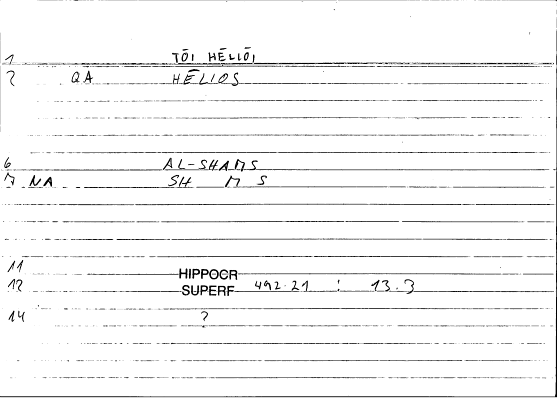 1 TŌI HĒLIŌI
2 QA HĒLIOS
6 AL-SHAMS
7 NA SH M S
11 HIPPOCR
12 SUPERF 492.21 : 13.3
14 ?